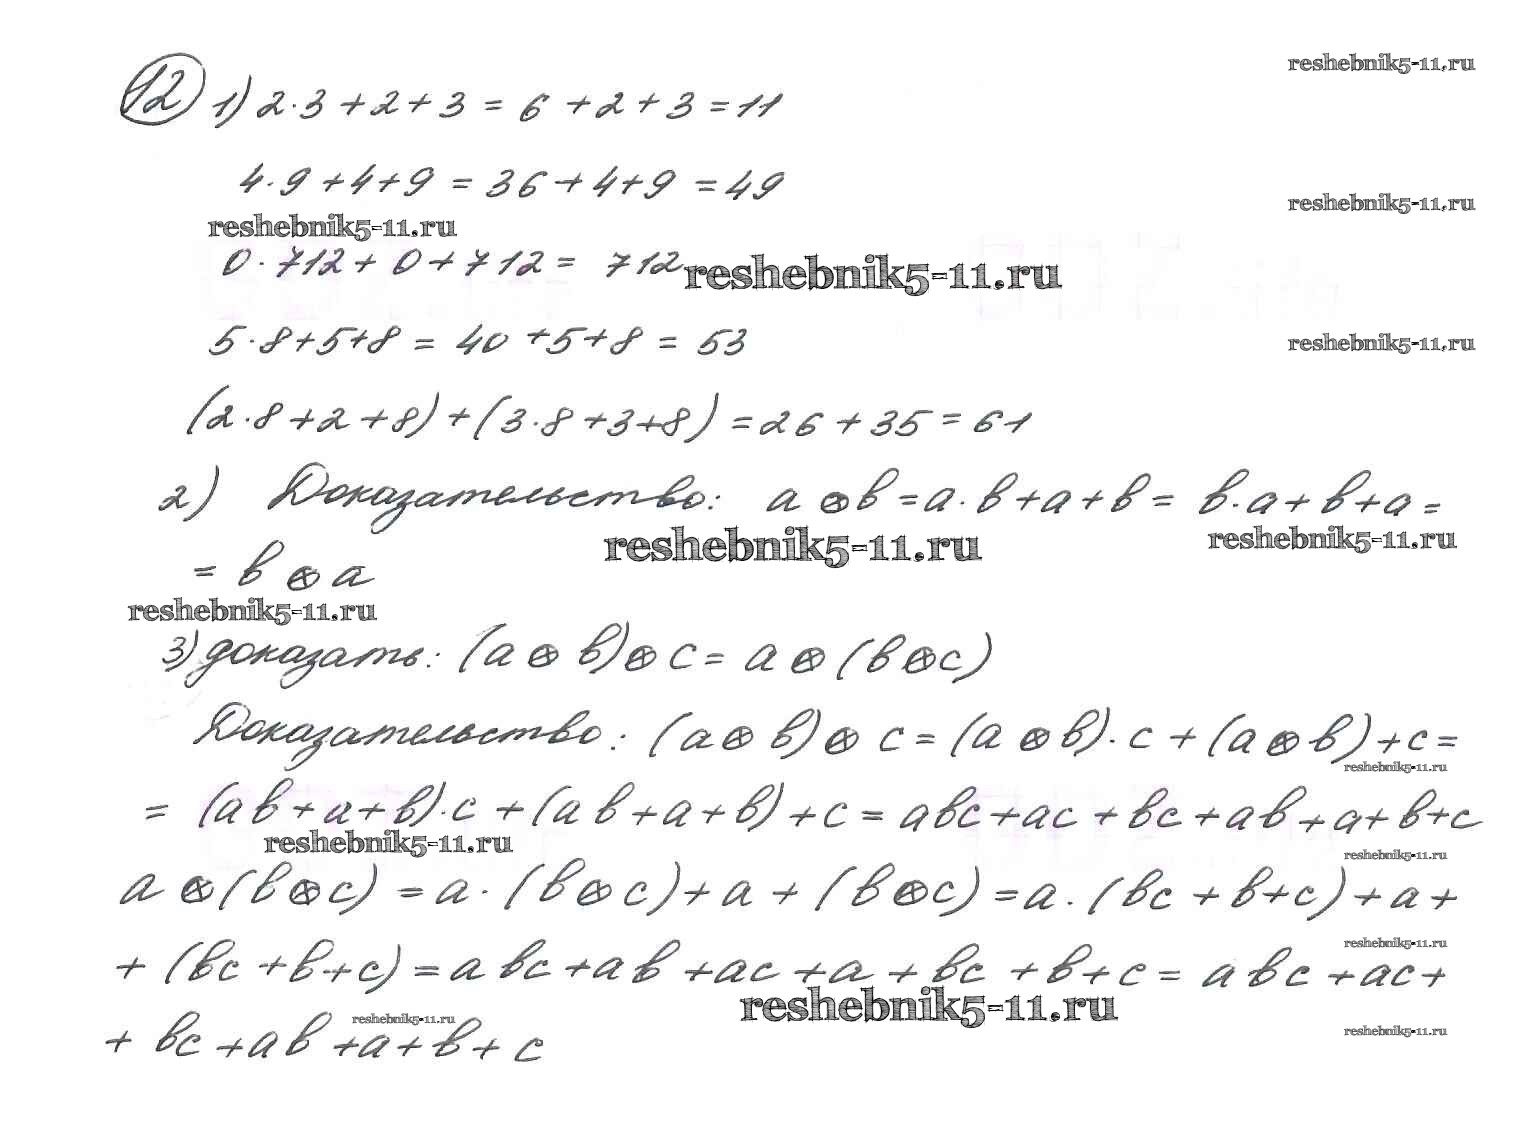 reshebnik5-11.ru
12 1) 2·3+2+3 = 6+2+3=11
4·9+4+9 = 36+4+9 = 49
reshebnik5-11.ru
reshebnik5-11.ru
0·712+0+712 = 712
reshebnik5-11.ru
5·8+5+8 = 40+5+8 = 53
reshebnik5-11.ru
(2·8+2+8)+(3·8+3+8) = 26+35 = 61
2) Доказательство: a⊗b=a·b+a+b= b·a+b+a=
reshebnik5-11.ru
reshebnik5-11.ru
= b⊗a
reshebnik5-11.ru
3) доказать: (a⊗b)⊗c= a⊗(b⊗c)
Доказательство: (a⊗b)⊗c=(a⊗b)·c+(a⊗b)+c=
reshebnik5-11.ru
= (ab+a+b)·c+(ab+a+b)+c=abc+ac+bc+ab+a+b+c
reshebnik5-11.ru
reshebnik5-11.ru
a⊗(b⊗c) =a·(b⊗c)+a+(b⊗c)=a·(bc+b+c)+a+
reshebnik5-11.ru
+(bc+b+c)=abc+ab+ac+a+bc+b+c= abc+ac+
reshebnik5-11.ru
reshebnik5-11.ru
reshebnik5-11.ru
+bc+ab+a+b+c